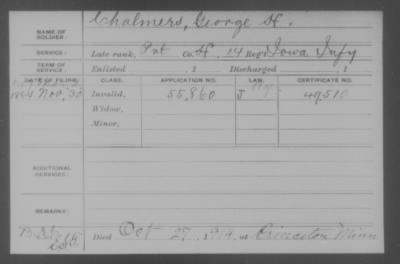 NAME OF SOLDIER: Chalmers, George H.
SERVICE: Late rank, Pvt Co. H, 14 Reg't Iowa Infy
TERM OF SERVICE: Enlisted , 1 Discharged , 1
DATE OF FILING. CLASS. APPLICATION NO. LAW. CERTIFICATE NO.
1864 Nov. 30 Invalid, 55,860 J 49510
Widow,
Minor,
ADDITIONAL SERVICES:
REMARKS:
Died Oct 27, 1914, at Princeton Minn